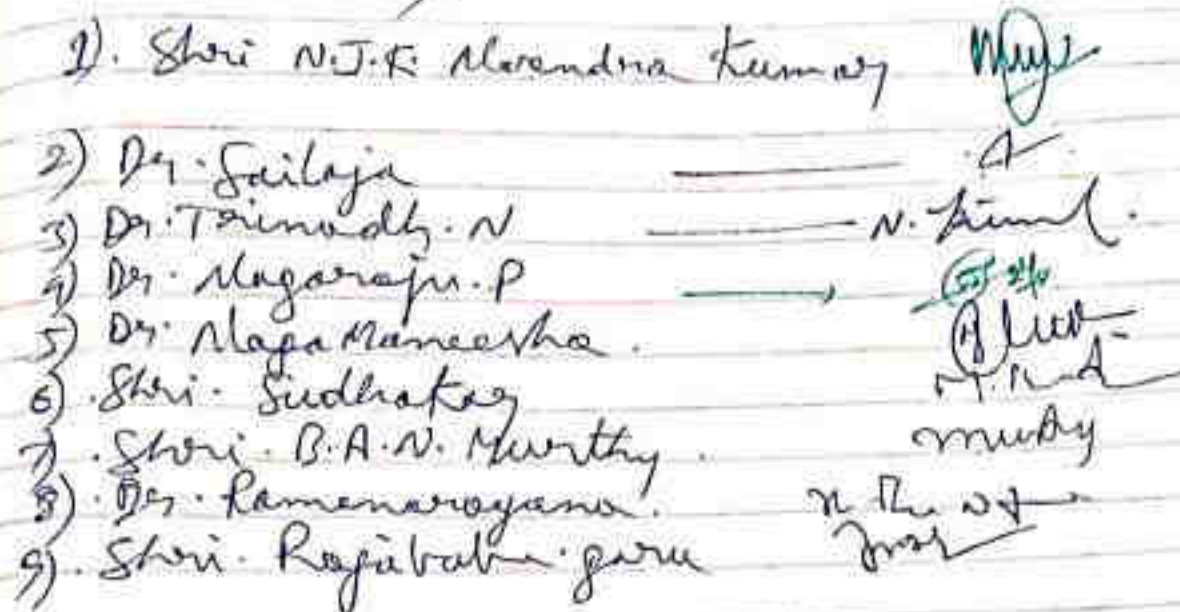 1). Shri N.J.K. Narendra Kumar
2) Dr. Sailaja
3) Dr. Trinadh. N
4) Dr. Nagaraju. P
5) Dr. Naga Maneesha.
6). Shri. Sudhakar
7). Shri. B.A.N. Murthy. Murthy
8). Dr. Ramanarayana.
9). Shri. Rajababu garu